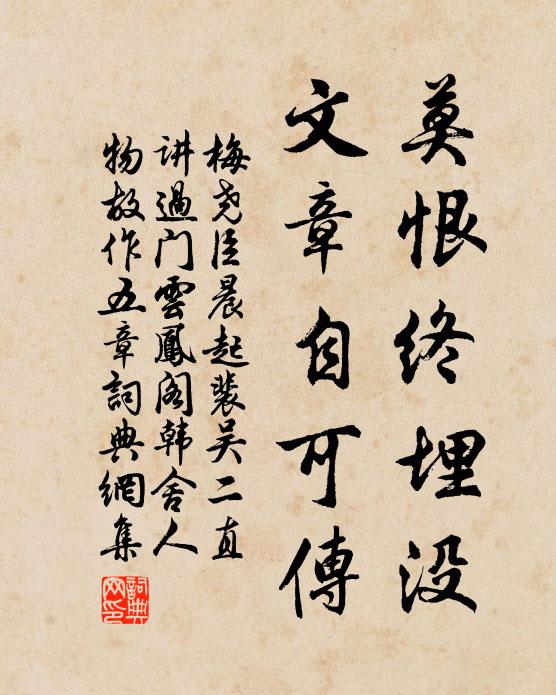 莫恨终埋没
文章自可傳
梅尭臣晨起裴吴二直
讲過门雲鳳阁韩舍人
物故作五章詞典網集
詞典網印